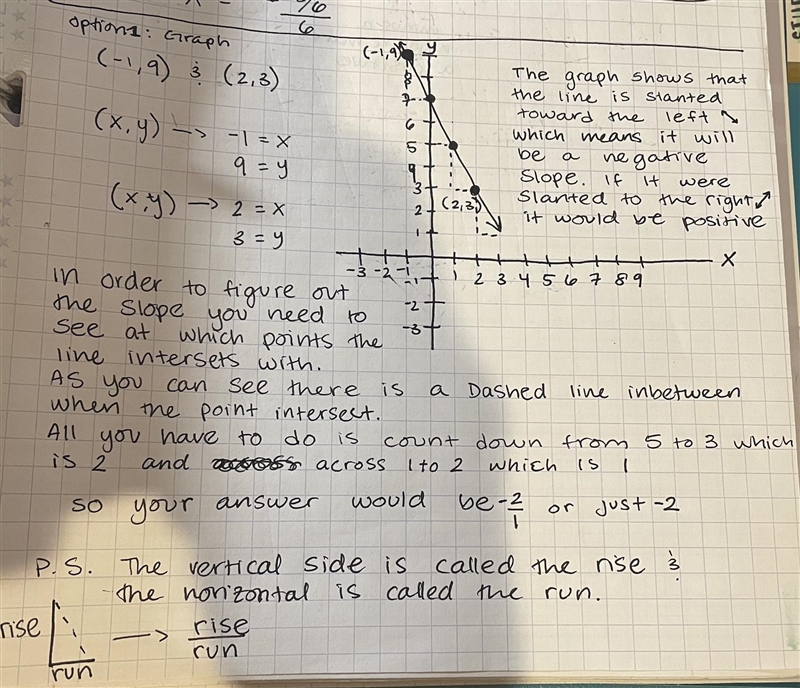 6
Option 1: Graph
(-1,9) & (2,3)
(x,y) → -1 = x
9 = y
(x,y) → 2 = x
3 = y
(-1,9)
y
8
7
6
5
4
3
2
1
(2,3)
-3 -2 -1 1 2 3 4 5 6 7 8 9 x
-1
-2
-3
The graph shows that
the line is slanted
toward the left ↘
which means it will
be a negative
slope. If it were
slanted to the right ↗
it would be positive
In order to figure out
the slope you need to
see at which points the
line intersets with.
As you can see there is a Dashed line inbetween
when the point intersect.
All you have to do is count down from 5 to 3 which
is 2 and across 1 to 2 which is 1
so your answer would be -2/1 or just -2
P.S. The vertical side is called the rise &
the horizontal is called the run.
rise → rise/run
run